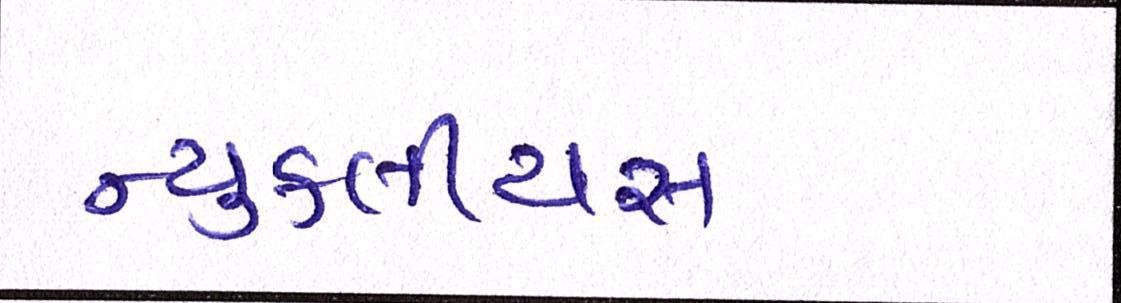 ન્યુકલીયસ